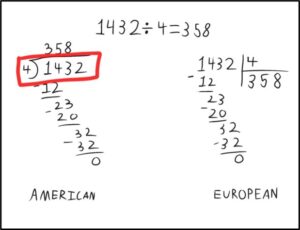 1432÷4=358
358
4)1432
-12
23
-20
32
-32
0
AMERICAN
1432 4
-12 358
23
-20
32
-32
0
EUROPEAN